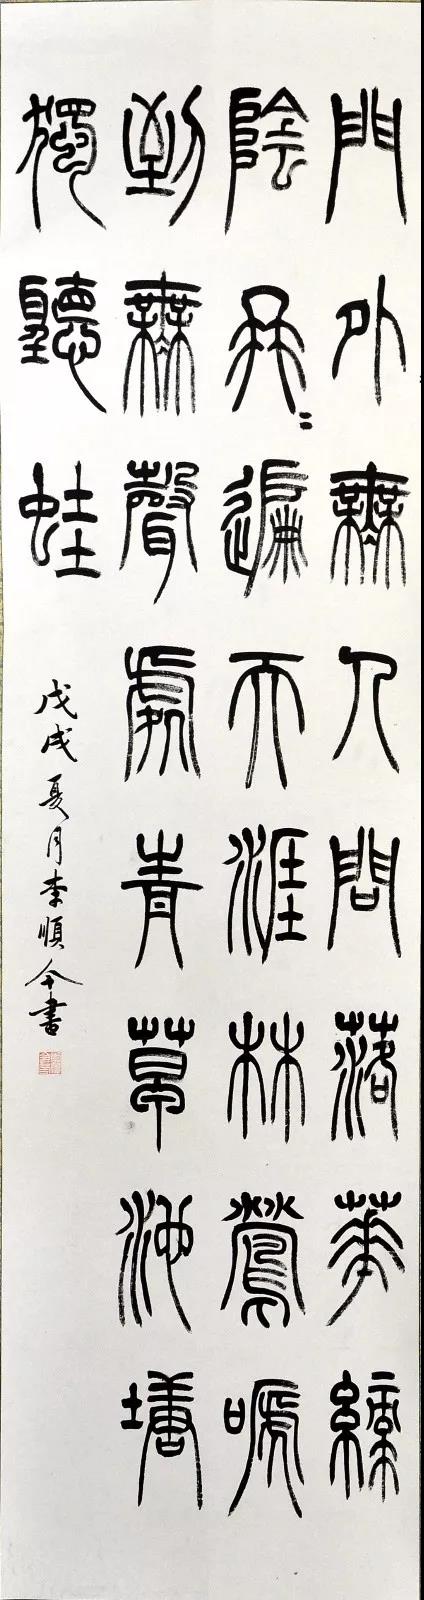 門外無人問落華綠
陰冉〻遍天涯林鶯嗁
到無聲處青草池塘
獨聽蛙
戊戌夏月李順書